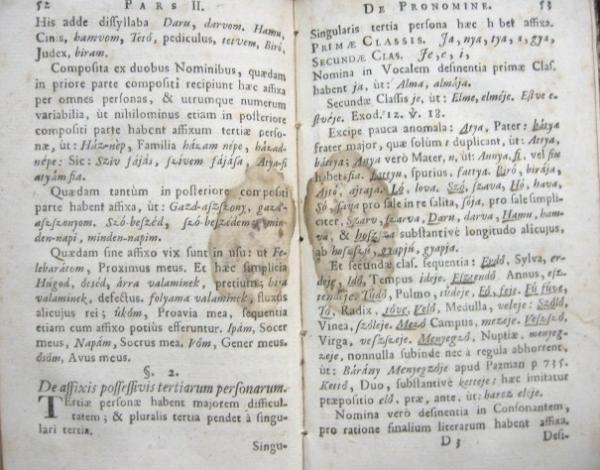 52 PARS II.
His adde dissyllaba Daru, darvom. Hamu,
Cinis, hamvom, Tetö, pediculus, tetvem, Biró,
Judex, biram.
Composita ex duobus Nominibus, quædam
in priore parte compositi recipiunt hæc affixa
per omnes personas, & utrumque numerum
variabilia, ut nihilominus etiam in posteriore
compositi parte habent affixum tertiæ perso-
næ, ùt: Ház-nép, Familia házam népe, házad-
népe: Sic: Sziv fájás, szivem fájása, Atya-fi
atyám fia.
Quædam tantùm in posteriore compositi
parte habent affixa, ùt: Gazd-aszszony, gazd-
aszszonyom. Szó-beszéd, szó-beszédem, min-
den-napi, minden-napim.
Quædam sine affixo vix sunt in usu: ut Fe-
lebarátom, Proximus meus. Et hæc simplicia
Húgod, öcséd, árra valaminek, pretium; híja
valaminek, defectus. folyama valaminek, fluxus
alicujus rei; üköm, Proavia mea, sequentia
etiam cum affixo potiùs efferuntur. Ipám, Socer
meus, Napám, Socrus mea. Vöm, Gener meus.
ösöm, Avus meus.
§. 2.
De affixis possessivis tertiarum personarum.
Tertiæ personæ habent majorem difficul-
tatem; & pluralis tertia pendet à singu-
lari tertia.
Singu-
DE PRONOMINE. 53
Singularis tertia persona hæc habet affixa.
PRIMÆ CLASSIS. Ja, nya, tya, a, gya,
SECUNDÆ CLAS. Je, e, i,
Nomina in Vocalem desinentia primæ Clas.
habent ja, ùt: Alma, almája.
Secundæ Classis je, ùt: Elme, elméje. Estve e-
stvéje. Exod. 12. v. 18.
Excipe pauca anomala: Atya, Pater: bátya
frater major, quæ solùm t duplicant, ùt: Attya,
báttya; Anya verò Mater, n, ùt: Annya. fi, vel fiu
habet fia. Fattyu, spurius, fattya. Biró, birája,
Ajtó, ajtaja, Ló, lova. Szó, szava, Hó, hava,
Só, sava pro sale in re salita, sója, pro sale simpli-
citer, Szarv, szarva, Daru, darva, Hamu, ham-
va, & hoszszu substantivè longitudo alicujus,
ab hoszszú, gyapjú, gyapja.
Et secundæ clas. sequentia: Erdő, Sylva, er-
deje, Idő, Tempus ideje. Esztendő. Annus, esz-
tendeje. Tüdő, Pulmo, tüdeje, Fő, feje. Fű füve,
Tő, Radix, töve, Velő, Medulla, veleje: Szőlő,
Vinea, szőleje. Mező Campus, mezeje. Veszsző,
Virga, veszszeje. Menyegző, Nuptiæ, menyeg-
zeje, nonnulla subinde nec à regula abhorrent,
ùt: Bárány Menyegzője apud Pazman p. 735.
Kettő, Duo, substantivè ketteje: hæc imitatur
præpositio elő, præ, ante, ùt: harcz eleje.
Nomina verò desinentia in Consonantem,
pro ratione finalium literarum habent affixa.
D 3
Desi-